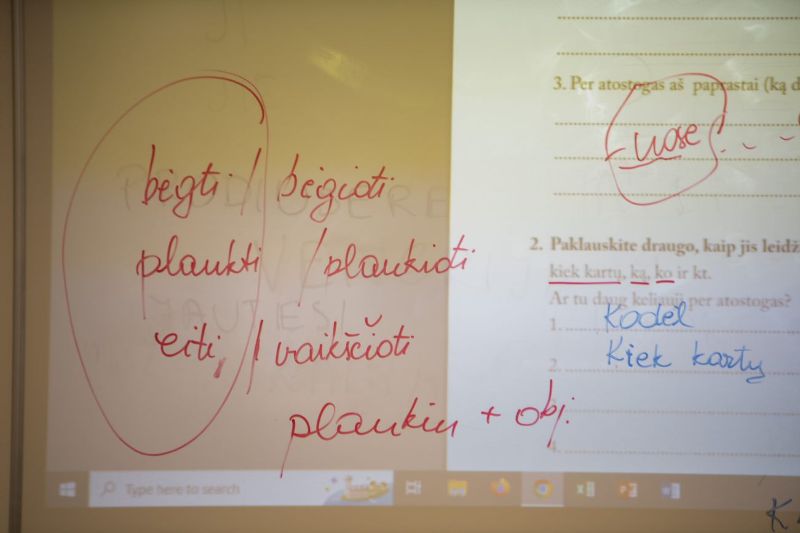 bėgti / bėgioti
plaukti / plaukioti
eiti / vaikščioti
plaukiu + obj.
3. Per atostogas aš paprastai (ką d
-uose
2. Paklauskite draugo, kaip jis leidži
kiek kartų, ką, ko ir kt.
Ar tu daug keliauji per atostogas?
1. Kodėl
2. Kiek kartų
3.
4.
Type here to search